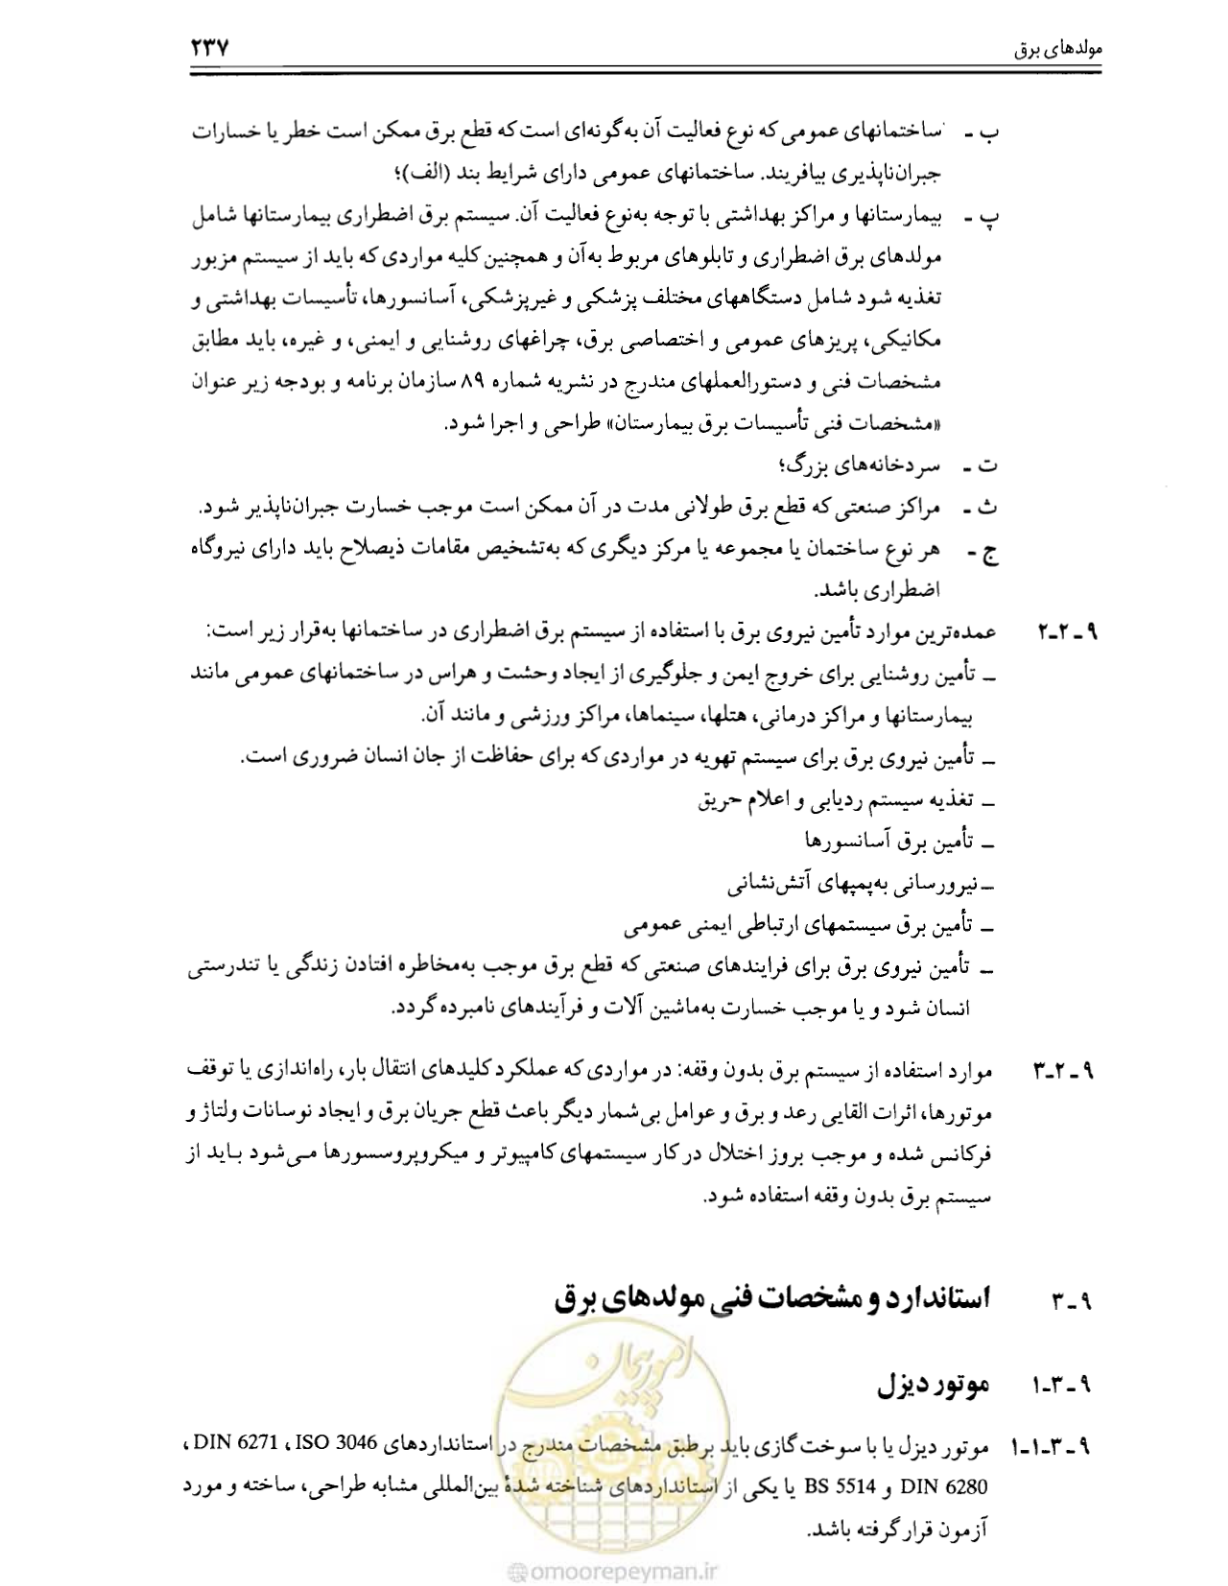 مولدهای برق ۲۳۷
ب ـ ساختمانهای عمومی که نوع فعالیت آن به‌گونه‌ای است که قطع برق ممکن است خطر یا خسارات
جبران‌ناپذیری بیافریند. ساختمانهای عمومی دارای شرایط بند (الف)؛
پ ـ بیمارستانها و مراکز بهداشتی با توجه به‌نوع فعالیت آن. سیستم برق اضطراری بیمارستانها شامل
مولدهای برق اضطراری و تابلوهای مربوط به‌آن و همچنین کلیه مواردی که باید از سیستم مزبور
تغذیه شود شامل دستگاههای مختلف پزشکی و غیرپزشکی، آسانسورها، تأسیسات بهداشتی و
مکانیکی، پریزهای عمومی و اختصاصی برق، چراغهای روشنایی و ایمنی، و غیره، باید مطابق
مشخصات فنی و دستورالعملهای مندرج در نشریه شماره ۸۹ سازمان برنامه و بودجه زیر عنوان
«مشخصات فنی تأسیسات برق بیمارستان» طراحی و اجرا شود.
ت ـ سردخانه‌های بزرگ؛
ث ـ مراکز صنعتی که قطع برق طولانی مدت در آن ممکن است موجب خسارت جبران‌ناپذیر شود.
ج ـ هر نوع ساختمان یا مجموعه یا مرکز دیگری که به‌تشخیص مقامات ذیصلاح باید دارای نیروگاه
اضطراری باشد.
۹ـ۲ـ۲ عمده‌ترین موارد تأمین نیروی برق با استفاده از سیستم برق اضطراری در ساختمانها به‌قرار زیر است:
ـ تأمین روشنایی برای خروج ایمن و جلوگیری از ایجاد وحشت و هراس در ساختمانهای عمومی مانند
بیمارستانها و مراکز درمانی، هتلها، سینماها، مراکز ورزشی و مانند آن.
ـ تأمین نیروی برق برای سیستم تهویه در مواردی که برای حفاظت از جان انسان ضروری است.
ـ تغذیه سیستم ردیابی و اعلام حریق
ـ تأمین برق آسانسورها
ـ نیرورسانی به‌پمپهای آتش‌نشانی
ـ تأمین برق سیستمهای ارتباطی ایمنی عمومی
ـ تأمین نیروی برق برای فرایندهای صنعتی که قطع برق موجب به‌مخاطره افتادن زندگی یا تندرستی
انسان شود و یا موجب خسارت به‌ماشین آلات و فرآیندهای نامبرده گردد.
۹ـ۲ـ۳ موارد استفاده از سیستم برق بدون وقفه: در مواردی که عملکرد کلیدهای انتقال بار، راه‌اندازی یا توقف
موتورها، اثرات القایی رعد و برق و عوامل بی‌شمار دیگر باعث قطع جریان برق و ایجاد نوسانات ولتاژ و
فرکانس شده و موجب بروز اختلال در کار سیستمهای کامپیوتر و میکروپروسسورها می‌شود باید از
سیستم برق بدون وقفه استفاده شود.
۹ـ۳ استاندارد و مشخصات فنی مولدهای برق
۹ـ۳ـ۱ موتور دیزل
۹ـ۳ـ۱ـ۱ موتور دیزل یا با سوخت گازی باید بر طبق مشخصات مندرج در استانداردهای ISO 3046 ، DIN 6271 ،
DIN 6280 و BS 5514 یا یکی از استانداردهای شناخته شدهٔ بین‌المللی مشابه طراحی، ساخته و مورد
آزمون قرار گرفته باشد.
امور پیمان
@omoorepeyman.ir